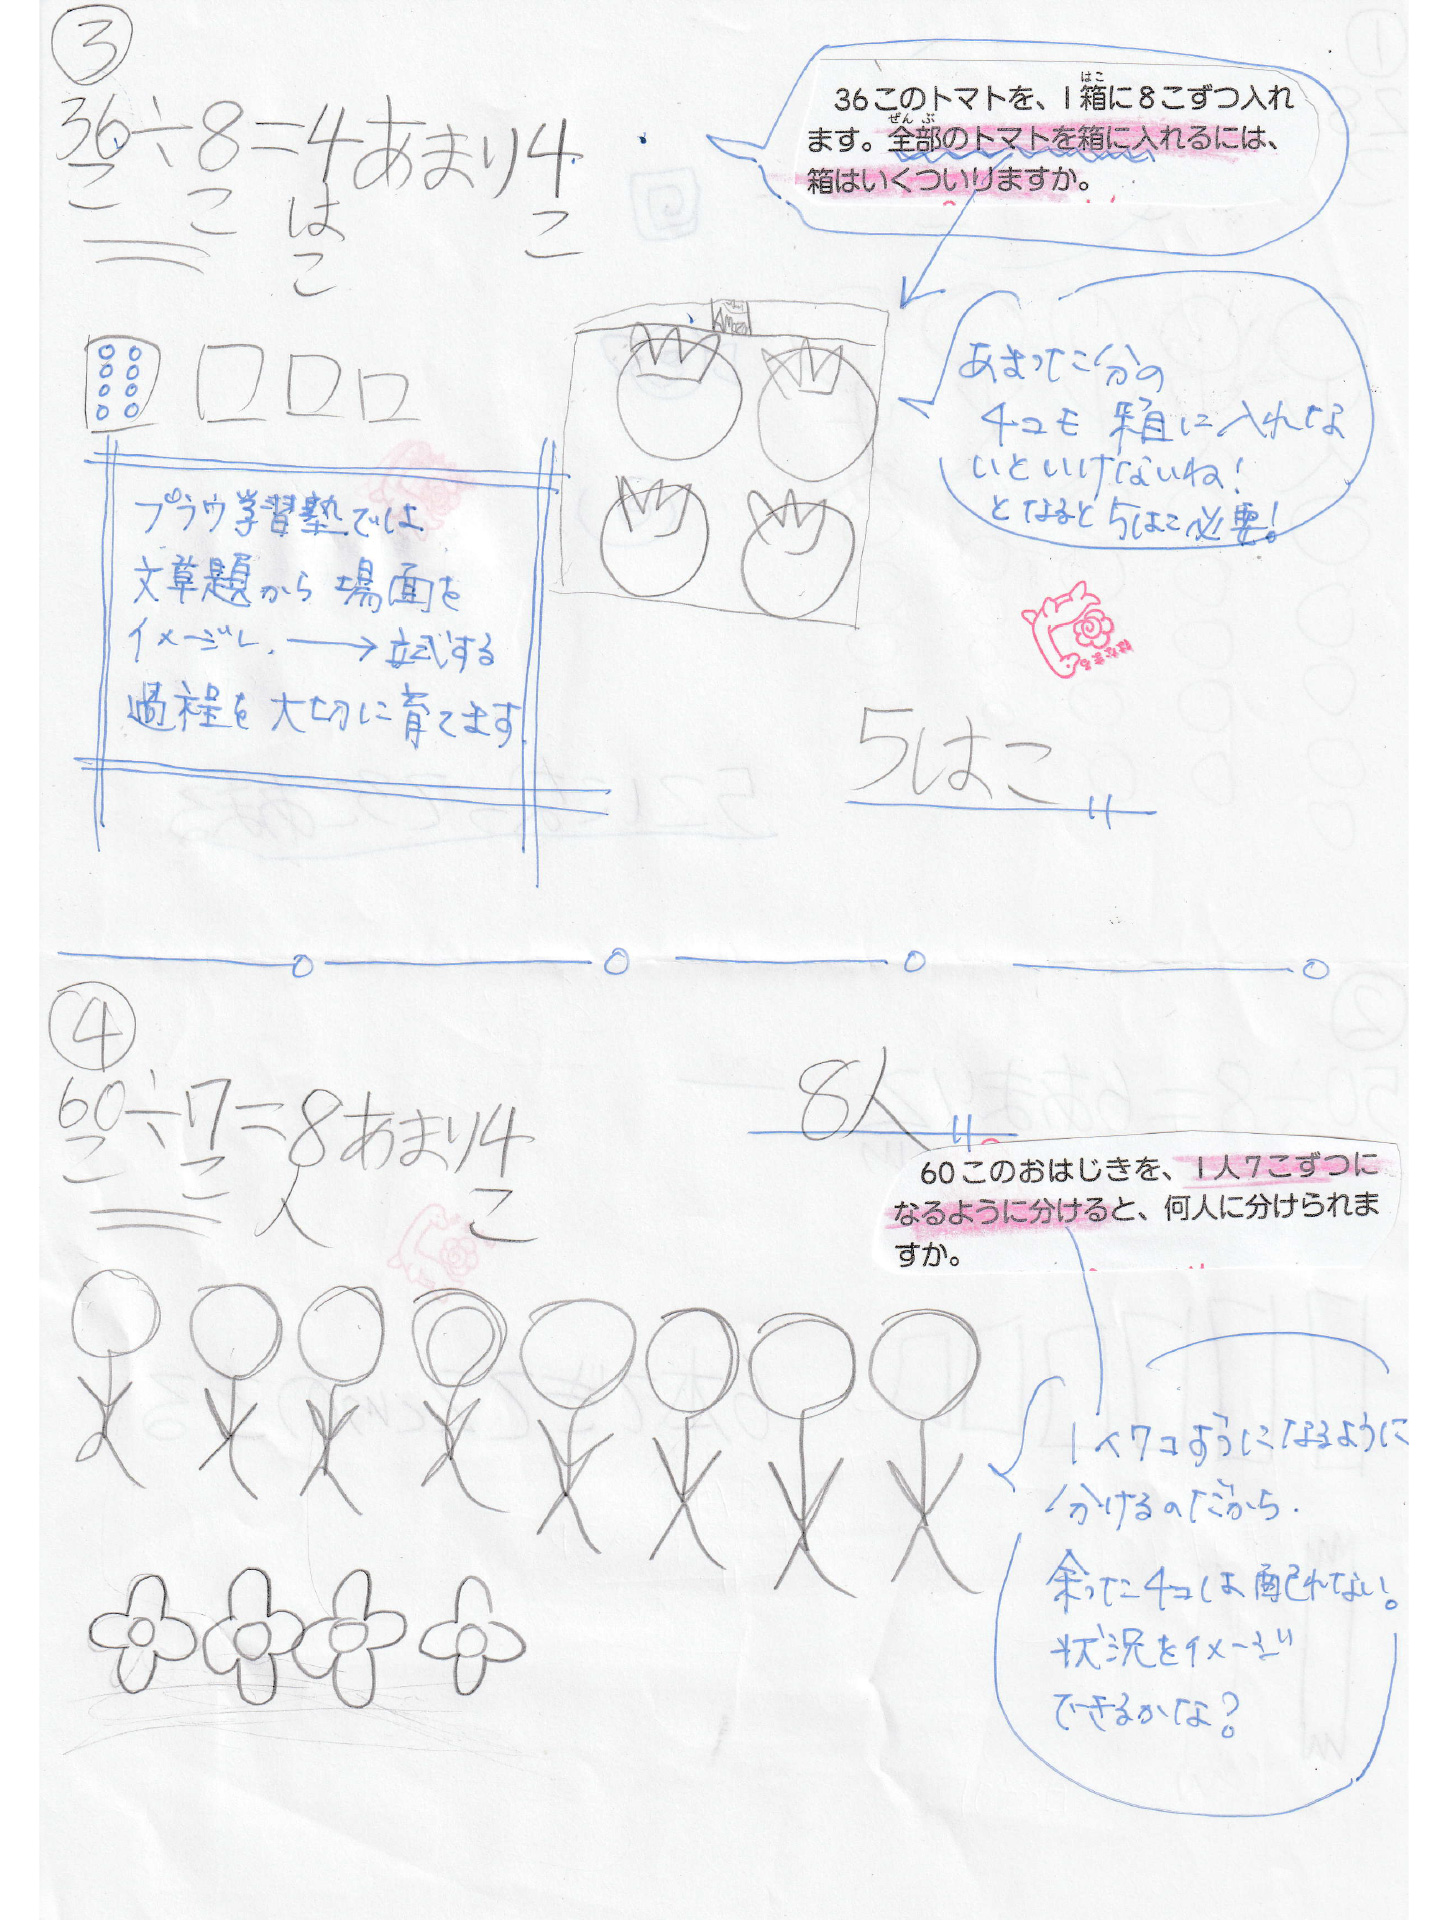 ③
36÷8=4あまり4
こ こ はこ こ
36このトマトを、1箱に8こずつ入れ
ます。全部のトマトを箱に入れるには、
箱はいくついりますか。
はこ
ぜんぶ
あまった分の
4コも箱に入れな
いといけないね!
となると5はこ必要!
プラウ学習塾では
文章題から場面を
イメージし、→立式する
過程を大切に育てます
5はこ
④
60÷7=8あまり4
こ こ 人 こ
8人
60このおはじきを、1人7こずつに
なるように分けると、何人に分けられま
すか。
1人7コずつになるように
分けるのだから、
余った4コは配れない。
状況をイメージ
できるかな?